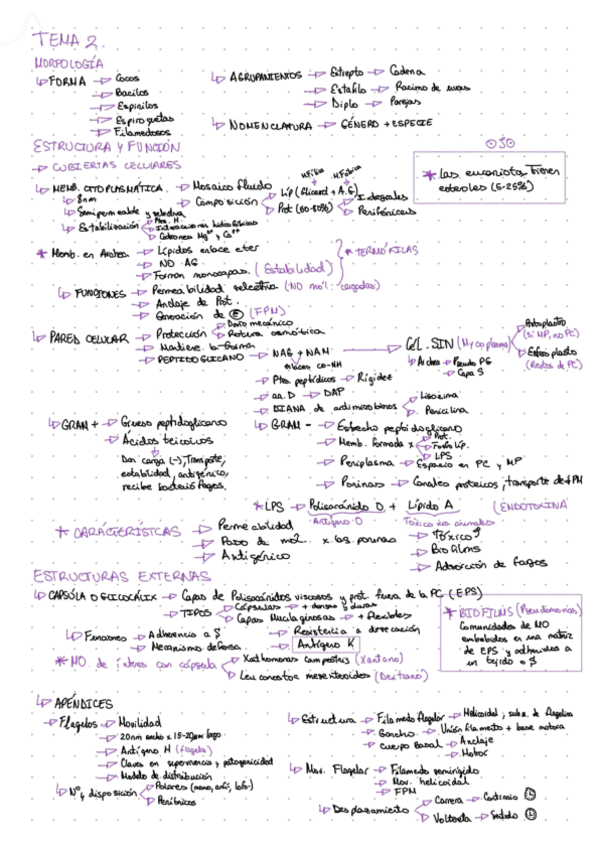 TEMA 2.
MORFOLOGÍA
FORMA → Cocos
→ Bacilos
→ Espirilos
→ Espiroquetas
→ Filamentosos
AGRUPAMIENTOS → Estrepto → Cadena
→ Estafilo → Racimo de uvas
→ Diplo → Parejas
NOMENCLATURA → GÉNERO + ESPECIE
ESTRUCTURA Y FUNCIÓN
→ CUBIERTAS CELULARES
OJO
* Las eucariotas tienen esteroles (5-25%)
MEMB. CITOPLASMÁTICA → Mosaico fluido
→ 8nm
→ Semipermeable y selectiva
→ Estabilización → Ptes. H
→ Interacciones hidrofóbicas
→ Cationes Mg²⁺ y Ca²⁺
→ Composición → Lip (Glicerol + A.G)
→ Prot (60-80%) → Integrales
→ Periféricas
* Memb. en Archea → Lípidos enlace eter
→ NO AG
→ Forman monocapas. (Estabilidad)
* TERMÓFILAS
FUNCIONES → Permeabilidad selectiva (NO mol. cargadas)
→ Anclaje de Prot.
→ Generación de E (FPM)
PARED CELULAR → Protección → Daño mecánico
→ Rotura osmótica
→ Mantiene la forma
→ PEPTIDOGLICANO → NAG + NAM
enlaces CO-NH
→ Ptes. peptídicos → Rigidez
→ aa. D → DAP
→ DIANA de antimicrobianos → Lisozima
→ Penicilina
CÉL. SIN (Mycoplasma) → Protoplasto (Si MP, no PC)
→ Esferoplasto (Restos de PC)
→ Archea → Pseudo PG
→ Capa S
GRAM + → Grueso peptidoglicano
→ Ácidos teicoicos
Dan carga (-), Transporte, estabilidad, antigénico, recibe bacteriófagos.
GRAM - → Estrecho peptidoglicano
→ Memb. formada x → Prot.
→ Fosfolíp.
→ LPS
→ Periplasma → Espacio en PC y MP
→ Porinas → Canales proteicos, transporte de ↓PM
* LPS → Polisacárido O + Lípido A (ENDOTOXINA)
Antígeno O
* CARACTERÍSTICAS → Permeabilidad
→ Paso de mol. x las porinas
→ Antigénico
→ Tóxico
→ Biofilms
→ Adsorción de fagos
ESTRUCTURAS EXTERNAS
CAPSÚLA O GLICOCÁLIX → Capas de Polisacáridos viscosos y prot. fuera de la PC (EPS)
→ TIPOS → Cápsulas → + densas y duras
→ Capas Mucilaginosas → + flexibles
Funciones → Adherencia a S
→ Mecanismo defensa
→ Resistencia a desecación
→ Antígeno K
* MO. de interes con cápsula → Xanthomonas campestris (Xantano)
→ Leuconostoc mesenteroides (Dextrano)
* BIOFILMS (Pseudomonas)
Comunidades de MO embebidos en una matriz de EPS y adheridos a un tejido o S
APÉNDICES
→ Flagelos → Movilidad
→ 20nm ancho x 15-20µm largo
→ Antígeno H (flagela)
→ Claves en supervivencia y patogenicidad
→ Modelo de distribución
Nº y disposición → Polares (mono, anfi, lofo)
→ Perítricos
Estructura → Filamento flagelar → Helicoidal, subu. de flagelina
→ Gancho → Unión filamento + base motora
→ Cuerpo Basal → Anclaje
→ Motor
Mov. Flagelar → Filamento semirigido
→ Mov. helicoidal
→ FPM
Desplazamiento → Carrera → Contrario
→ Voltereta → Sentido